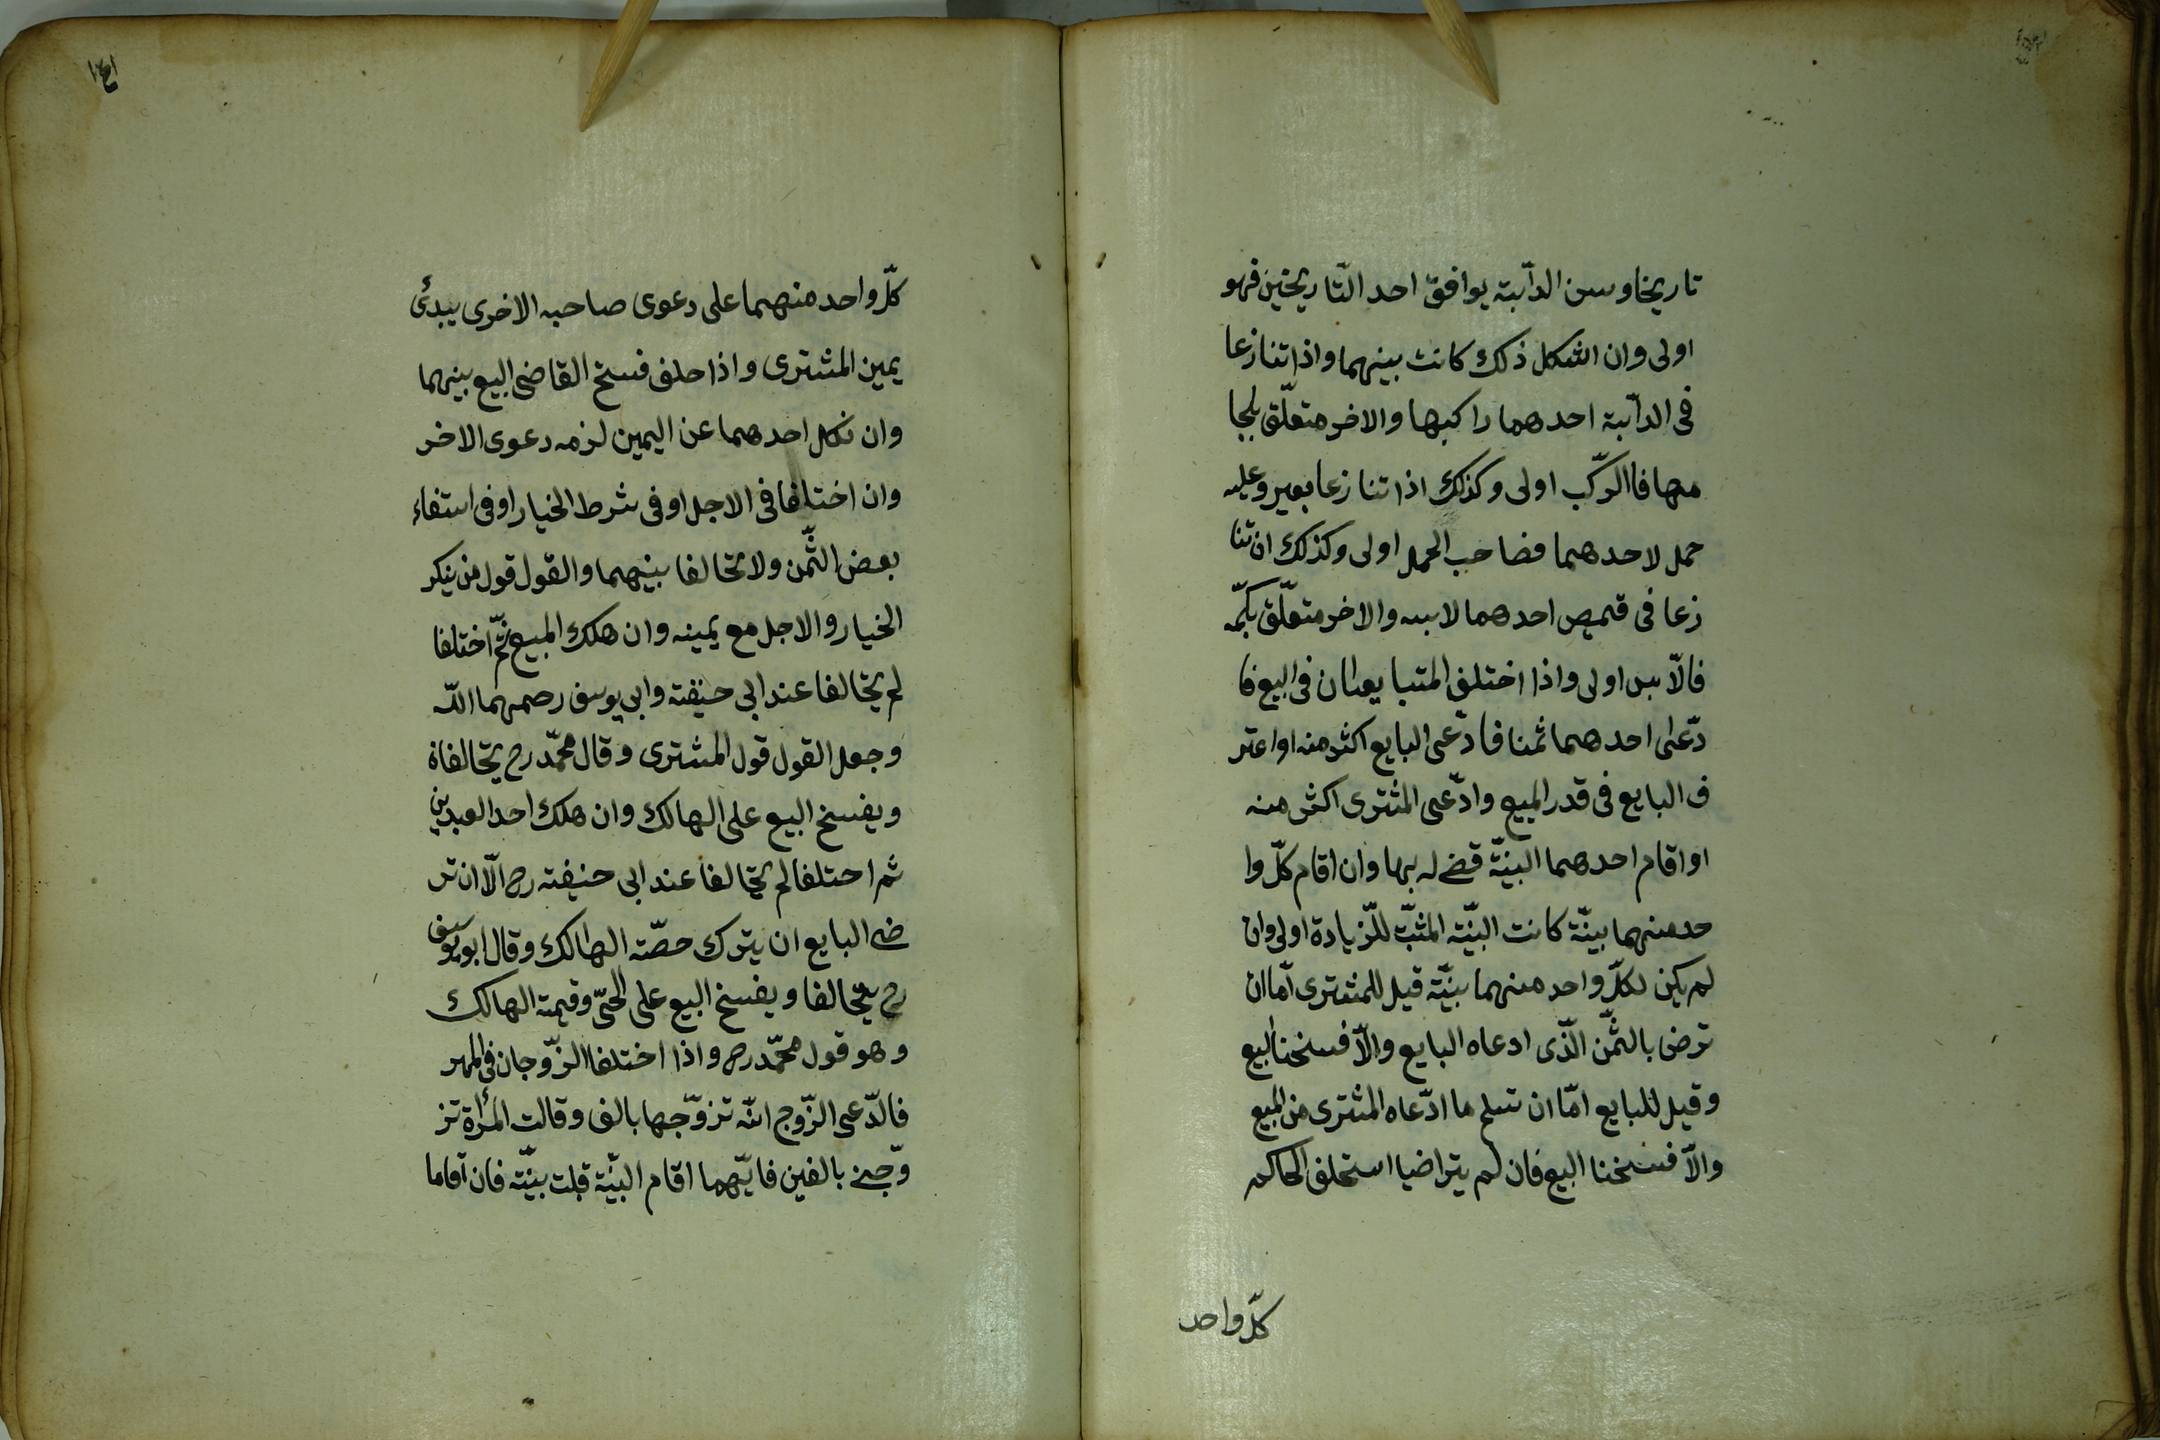 تاريخا وسن الدآبة يوافق احد التّاريخين فهو
اولى وان اشكل ذلك كانت بينهما واذا تنازعا
فى الدآبة احدهما راكبها والاخر متعلّق بلجا
مها فاالركّب اولى وكذلك اذا تنازعا بعير وعليه
حمل لاحدهما فصاحب الحمل اولى وكذلك ان تنا
زعا فى قميص احدهما لابسه والاخر متعلّق بكمّه
فالّابس اولى واذا اختلف المتبايعان فى البيع فا
دّعى احدهما ثمنا فادّعى البايع اكثر منه او اعتر
ف البايع فى قدر المبيع وادّعى المشترى اكثر منه
او اقام احدهما البيّنة قضى له بها وان اقام كلّ وا
حد منهما بينّة كانت البيّنة المثبّت للّزيادة اولى وان
لم يكن لكلّ واحد منهما بيّنة قيل للمشترى امّا ان
ترضى بالثّمن الّذى ادعاه البايع والّا فسخنا البيع
وقيل للبايع امّا ان تسلم ما ادّعاه المشترى من المبيع
والّا فسخنا البيع فان لم يتراضيا استحلف الحاكم
كلّ واحد
١٤١
كلّ واحد منهما على دعوى صاحبه الاخرى يبدئ
يمين المشترى واذا حلف فسخ القاضى البيع بينهما
وان نكل احدهما عن اليمين لزمه دعوى الاخر
وان اختلفا فى الاجل او فى شرط الخيار او فى استفاء
بعض الثّمن ولا تحالفا بينهما والقول قول من ينكر
الخيار والاجل مع يمينه وان هلك المبيع ثمّ اختلفا
لم يتحالفا عند ابى حنيفة وابى يوسف رحمهما اللّه
وجعل القول قول المشترى وقال محمّد رح يتحالفان
ويفسخ البيع على الهالك وان هلك احد العبدين
ثم اختلفا لم يتحالفا عند ابى حنيفة رح الّا ان تر
ضى البايع ان يترك حصّة الهالك وقال ابو يوسف
رح يتحالفا ويفسخ البيع على الحىّ وقيمة الهالك
وهو قول محمّد رح واذا اختلفا الزّوجان فى المهر
فالدّعى الزّوج انّه تزوّجها بالف وقالت المرأة تز
وّجنى بالفين فايّهما اقام البيّنة قبلت بيّنته فان اقاما